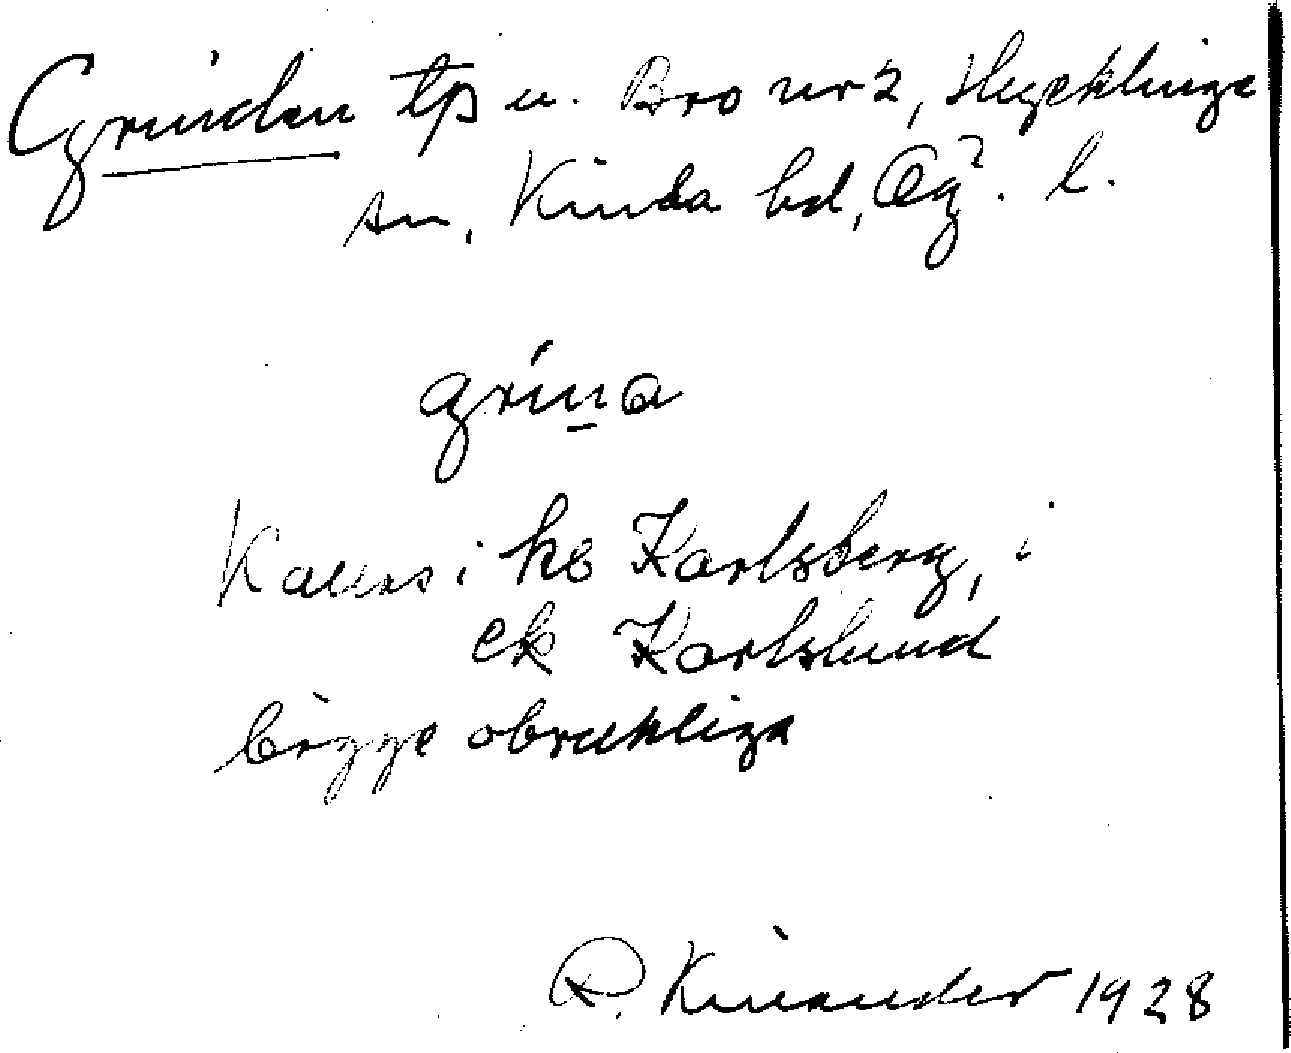 Grinden tp u. Bro nr 2, Hycklinge
sn, Kinda hd, Ög. l.
grina
Kallas i kb Karlsberg, i
ek Karlslund
bägge obrukliga
R. Kinander 1928